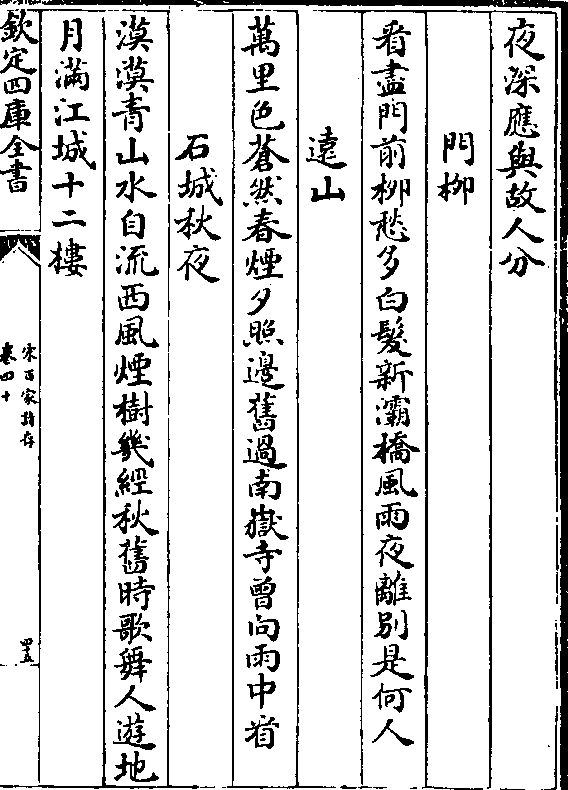 夜深應與故人分
門柳
看盡門前柳愁多白髮新灞橋風雨夜離别是何人
遠山
萬里色蒼然春煙夕照邊舊過南嶽寺曾向雨中看
石城秋夜
漠漠青山水自流西風煙樹幾經秋舊時歌舞人遊地
月滿江城十二樓
欽定四庫全書
宋百家詩存
卷四十
四五